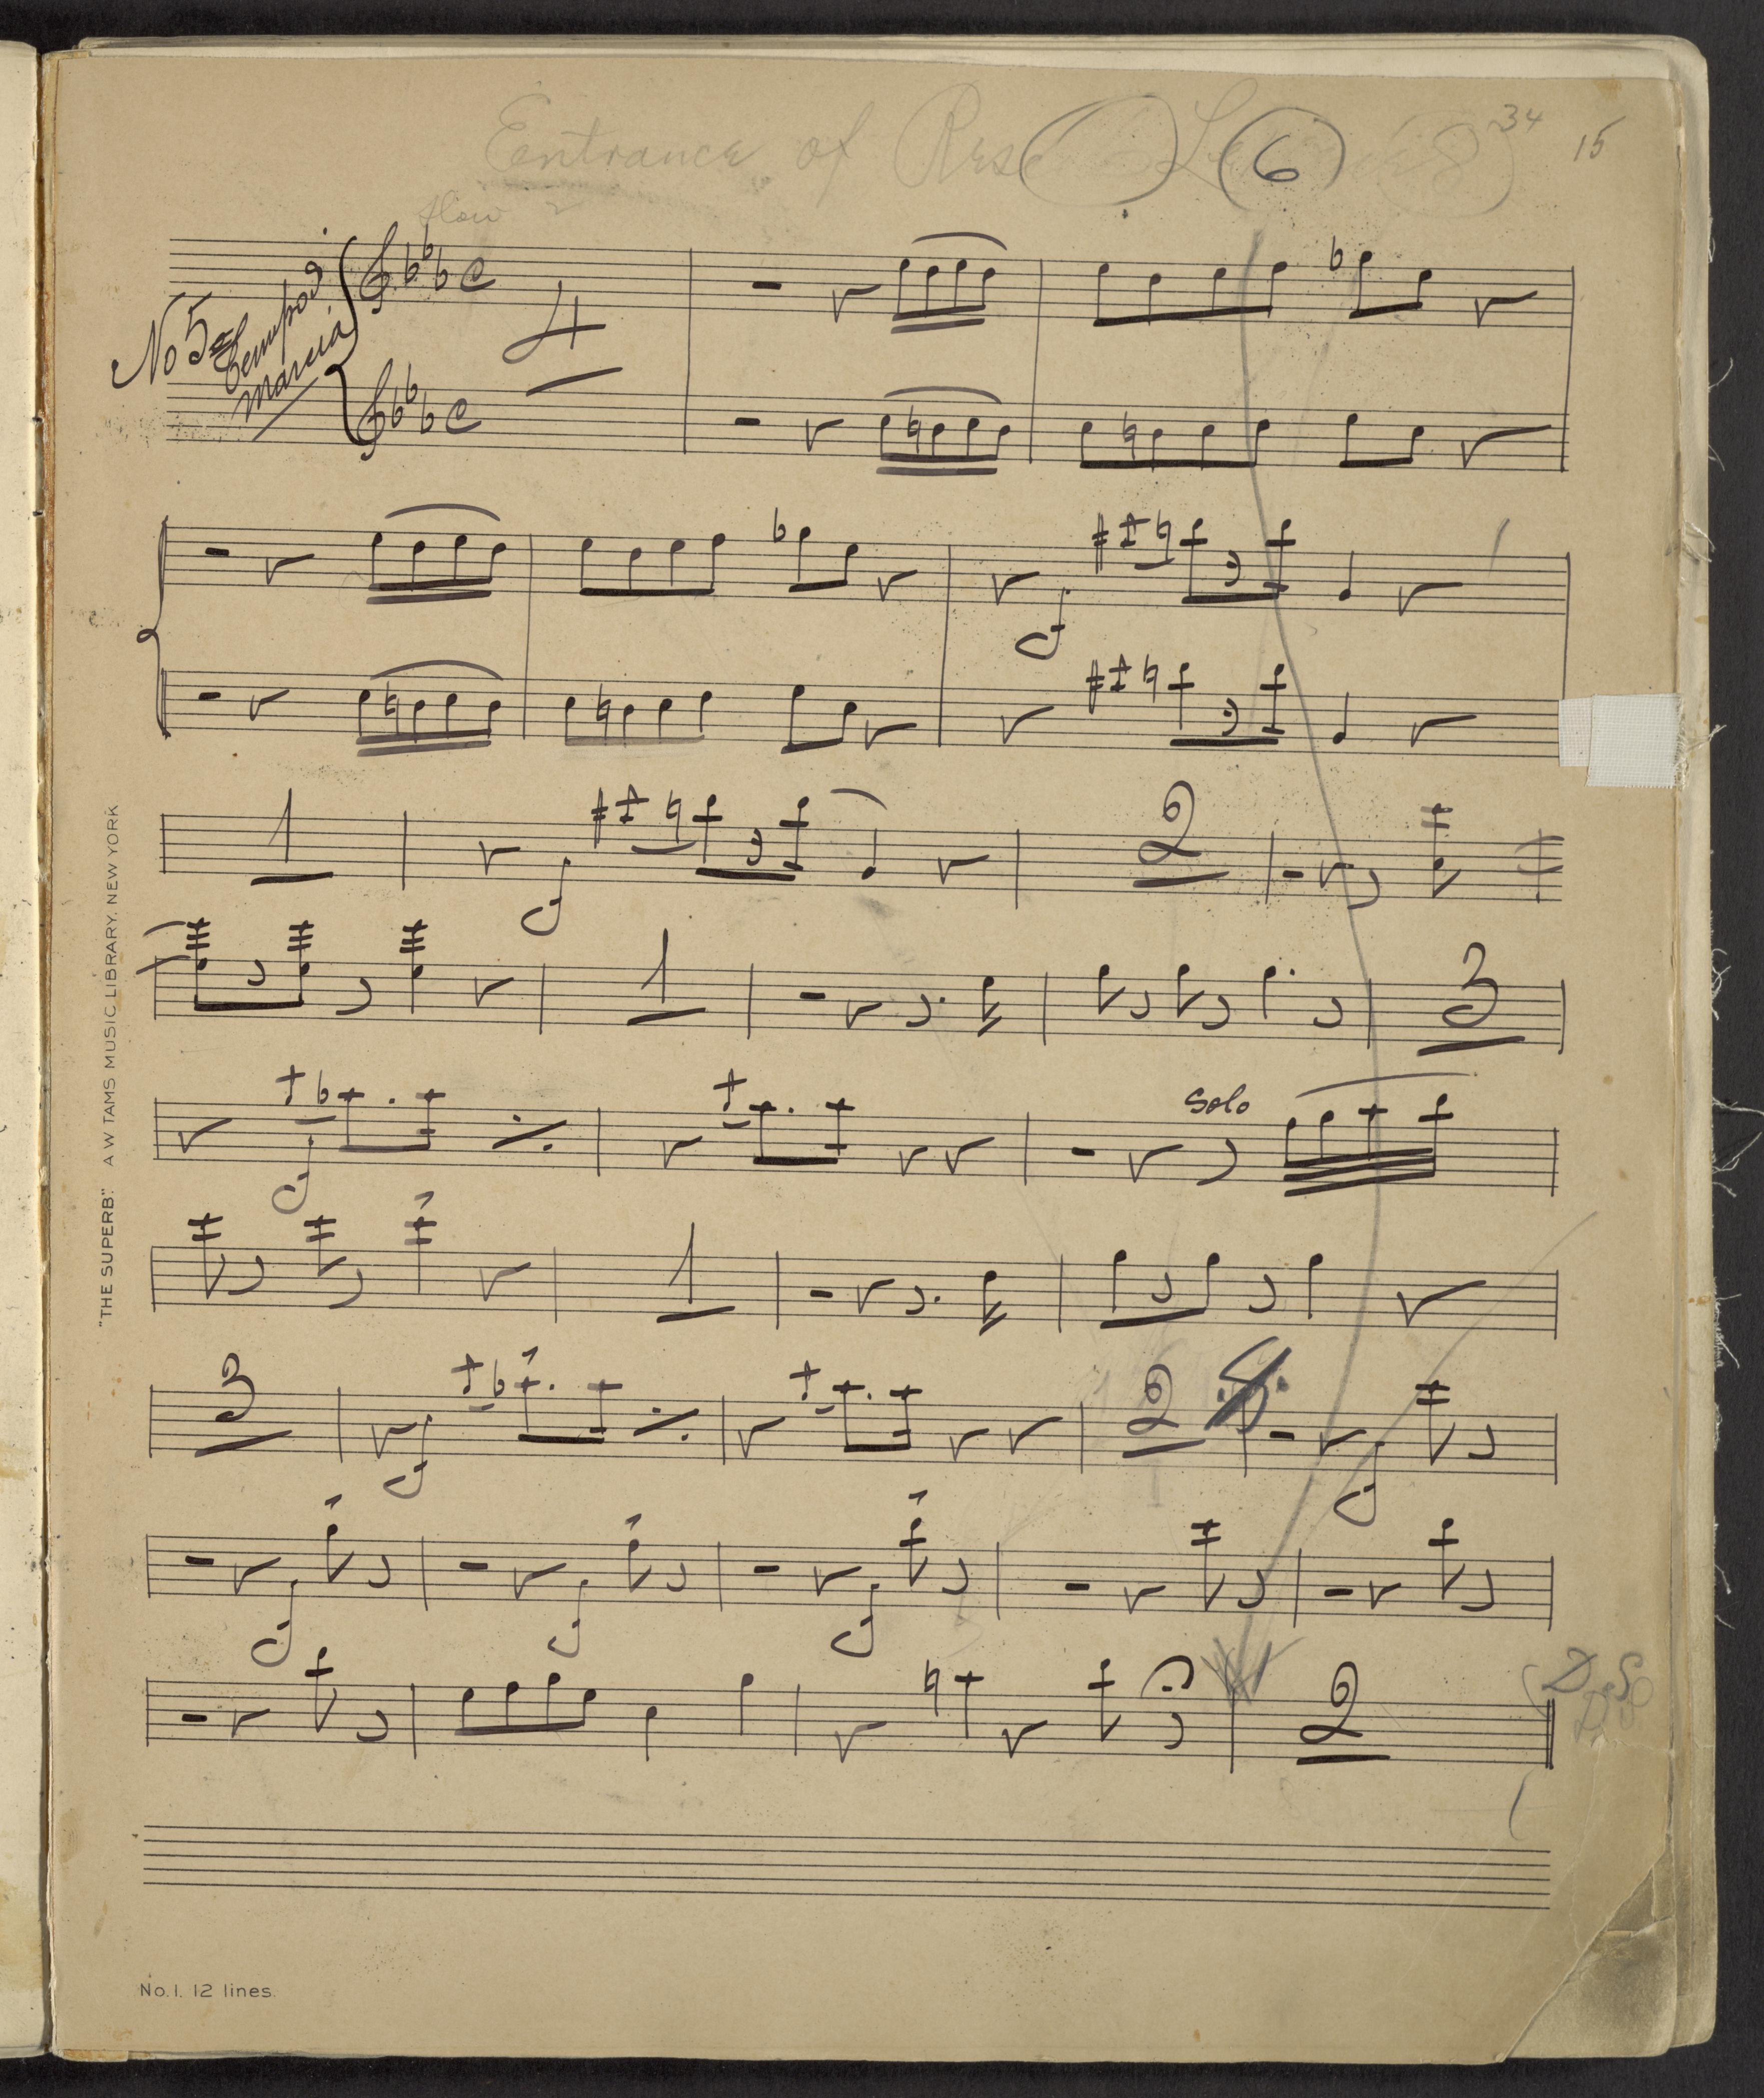 Entrance of
(6)
34
15
No 5
Tempo di
marcia
4
1
2
1
3
Solo
1
3
2
2
D.S.
"THE SUPERB." A W TAMS MUSIC LIBRARY, NEW YORK
No. 1. 12 lines.